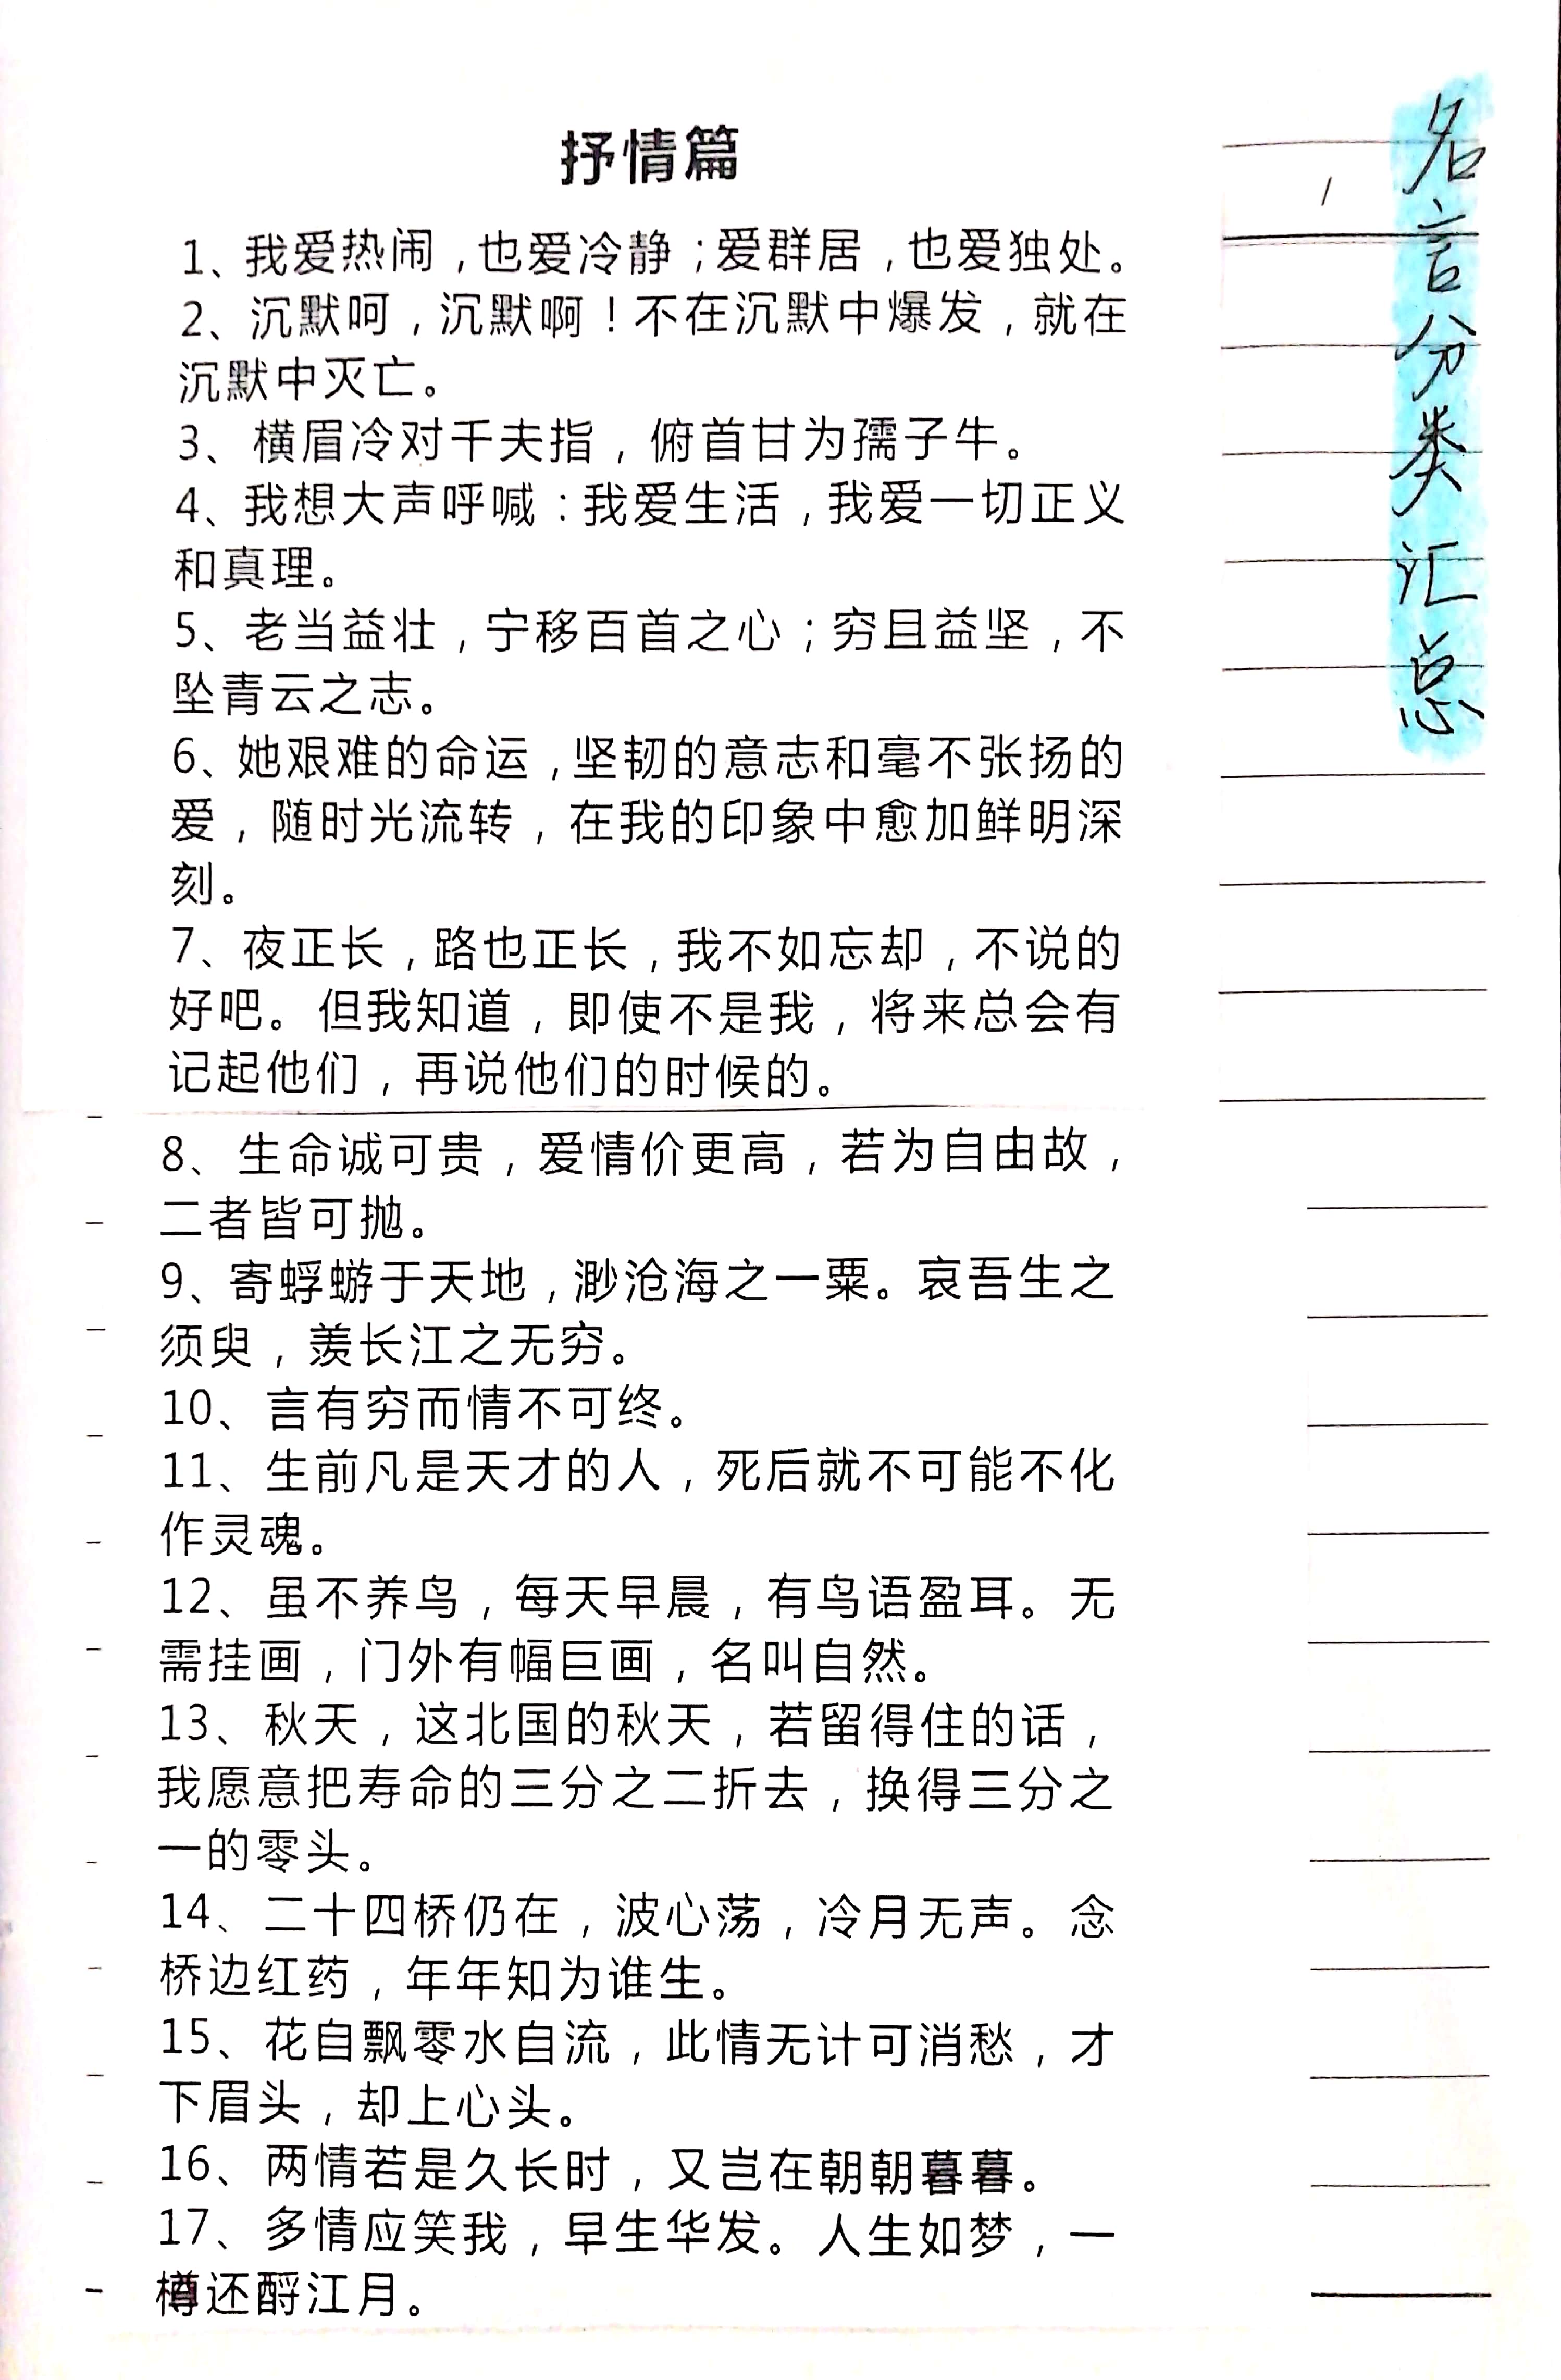 抒情篇
1、我爱热闹，也爱冷静；爱群居，也爱独处。
2、沉默呵，沉默啊！不在沉默中爆发，就在
沉默中灭亡。
3、横眉冷对千夫指，俯首甘为孺子牛。
4、我想大声呼喊：我爱生活，我爱一切正义
和真理。
5、老当益壮，宁移百首之心；穷且益坚，不
坠青云之志。
6、她艰难的命运，坚韧的意志和毫不张扬的
爱，随时光流转，在我的印象中愈加鲜明深
刻。
7、夜正长，路也正长，我不如忘却，不说的
好吧。但我知道，即使不是我，将来总会有
记起他们，再说他们的时候的。
8、生命诚可贵，爱情价更高，若为自由故，
二者皆可抛。
9、寄蜉蝣于天地，渺沧海之一粟。哀吾生之
须臾，羡长江之无穷。
10、言有穷而情不可终。
11、生前凡是天才的人，死后就不可能不化
作灵魂。
12、虽不养鸟，每天早晨，有鸟语盈耳。无
需挂画，门外有幅巨画，名叫自然。
13、秋天，这北国的秋天，若留得住的话，
我愿意把寿命的三分之二折去，换得三分之
一的零头。
14、二十四桥仍在，波心荡，冷月无声。念
桥边红药，年年知为谁生。
15、花自飘零水自流，此情无计可消愁，才
下眉头，却上心头。
16、两情若是久长时，又岂在朝朝暮暮。
17、多情应笑我，早生华发。人生如梦，一
樽还酹江月。
名言分类汇总